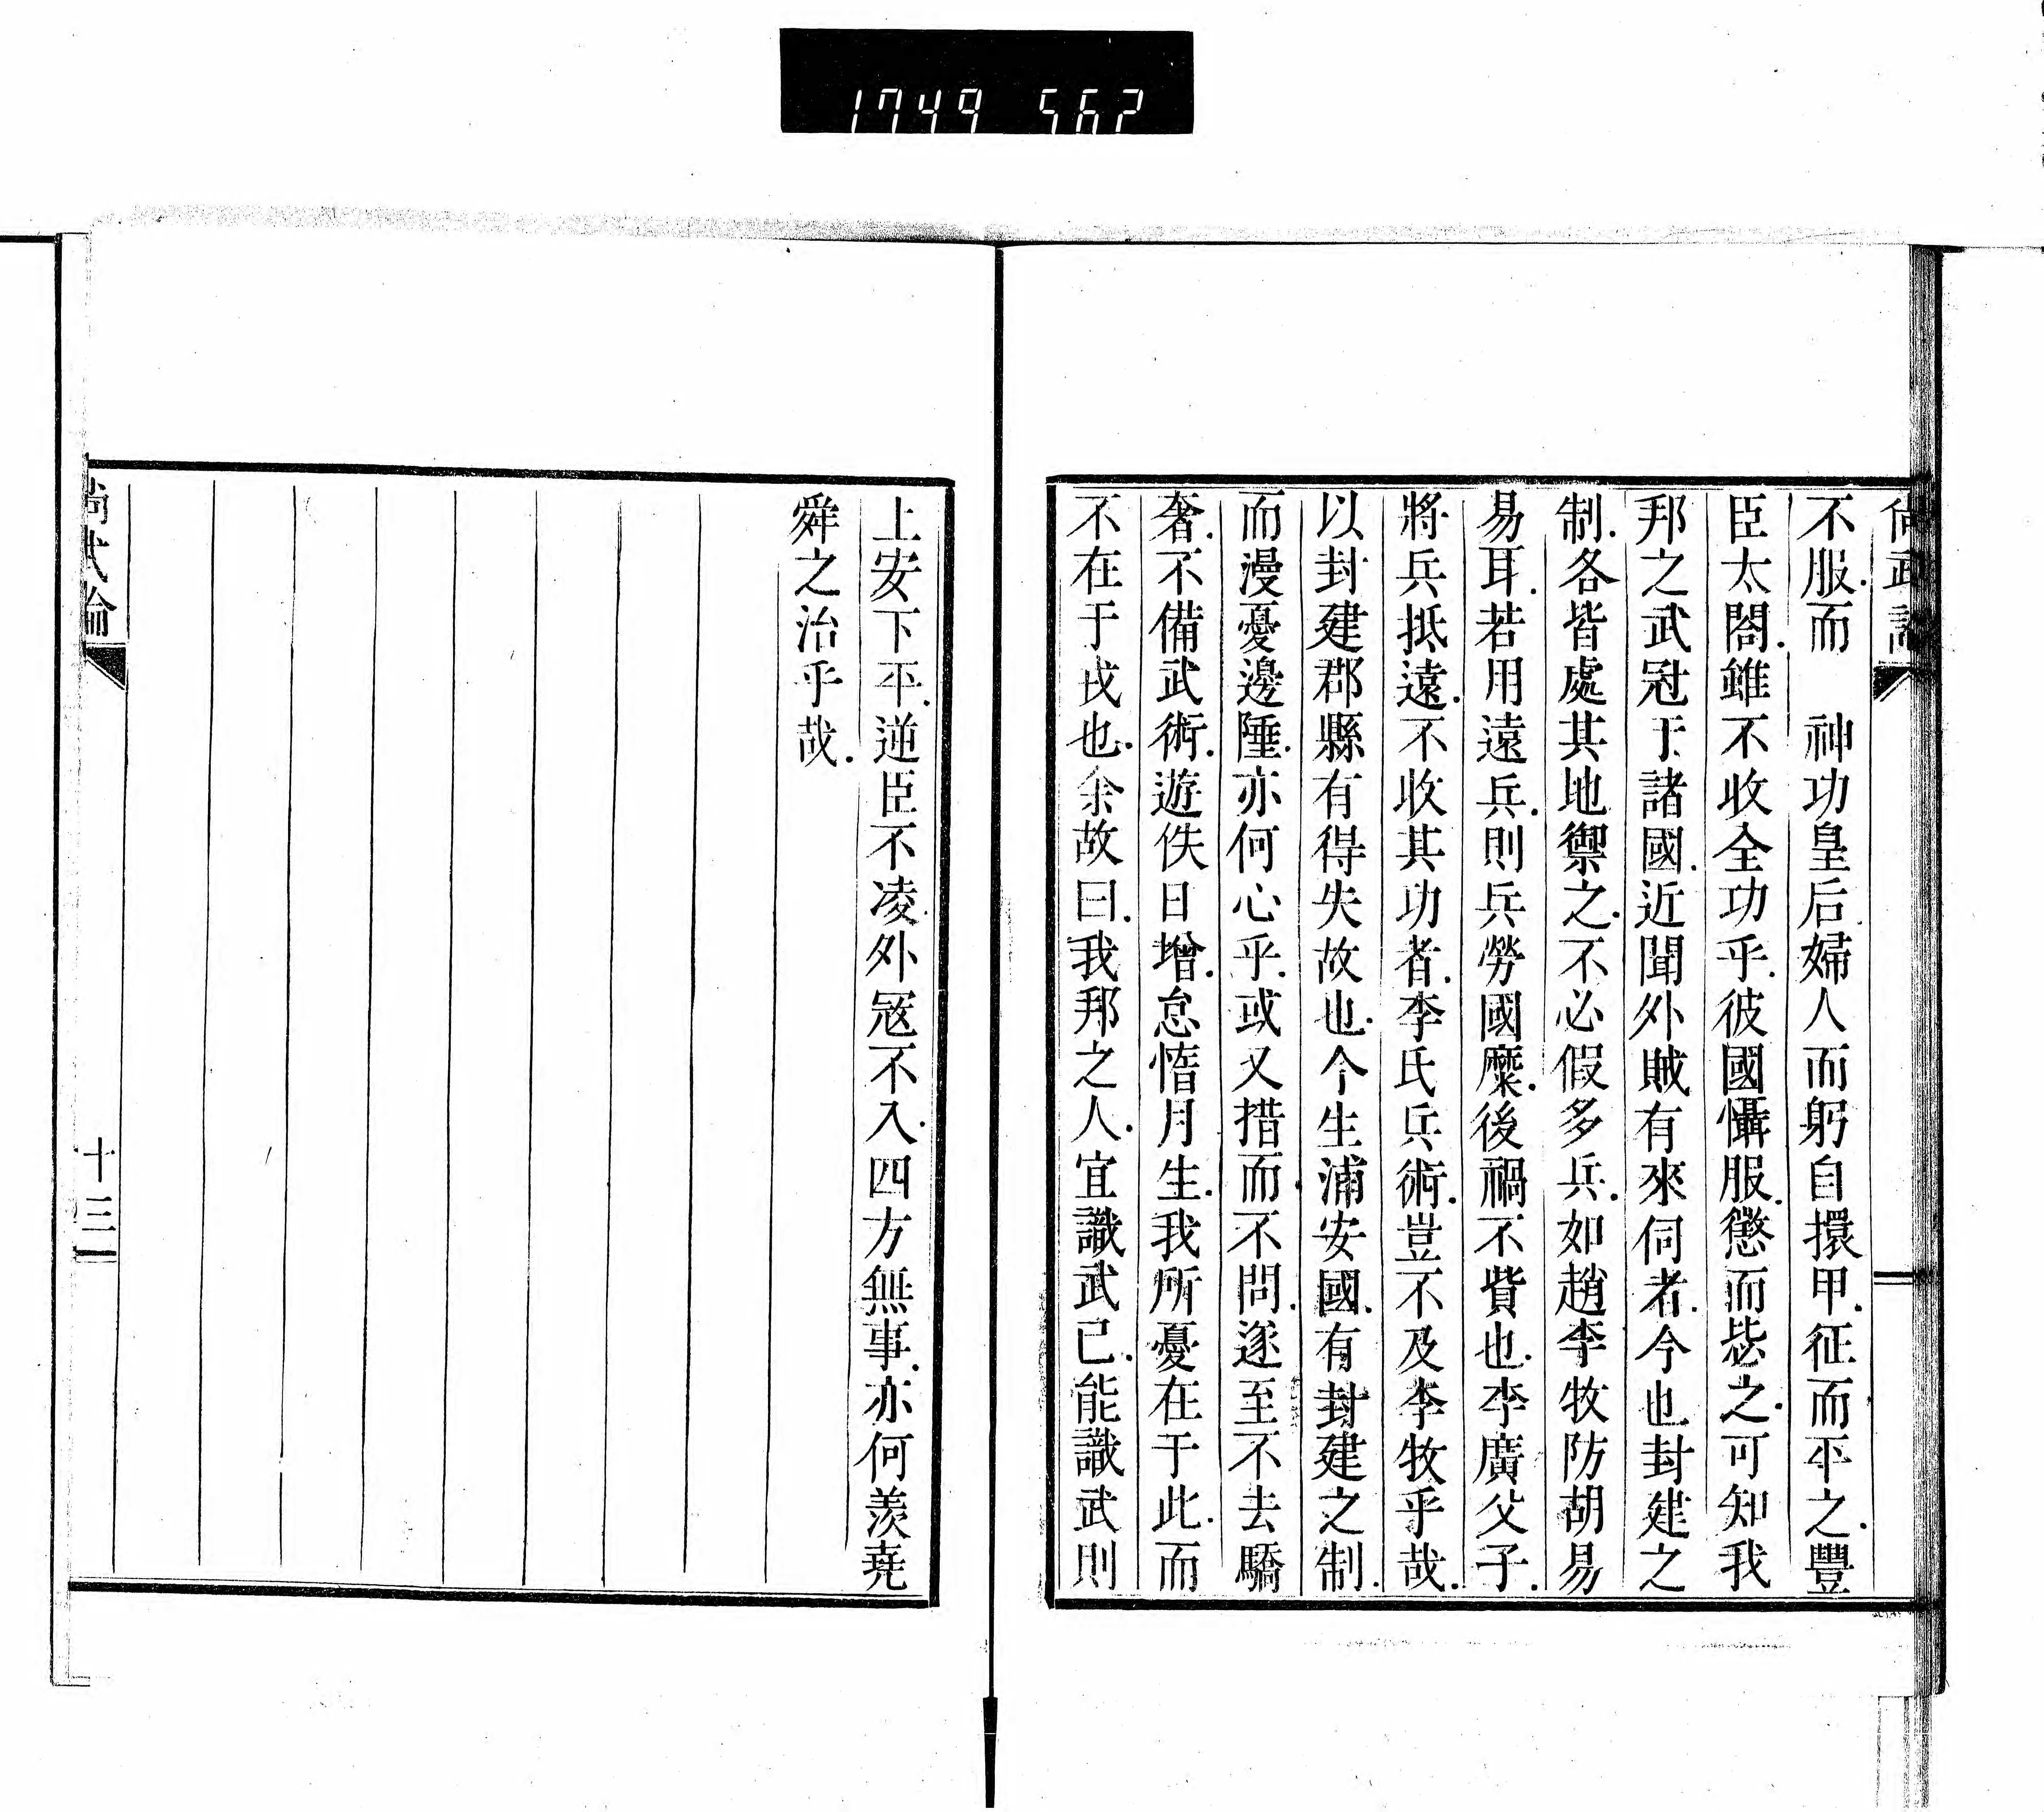 1749 562
尚武論
不服.而　神功皇后.婦人而躬自擐甲.征而平之.豐
臣太閤.雖不收全功乎.彼國懾服.懲而毖之.可知我
邦之武冠于諸國.近聞外賊有來伺者.今也封建之
制.各皆處其地禦之.不必假多兵.如趙李牧防胡易
易耳.若用遠兵.則兵勞國糜.後禍不貲也.李廣父子.
將兵抵遠.不收其功者.李氏兵術.豈不及李牧乎哉.
以封建郡縣有得失故也.今生浦安國.有封建之制.
而漫憂邊陲.亦何心乎.或又措而.不問.遂至不去驕
奢.不備武術.遊佚日增.怠惰月生.我所憂在于此.而
不在于戎也.余故曰.我邦之人.宜識武已.能識武則
上安下平.逆臣不凌.外寇不入.四方無事.亦何羨堯
舜之治乎哉.
尚武論
十三